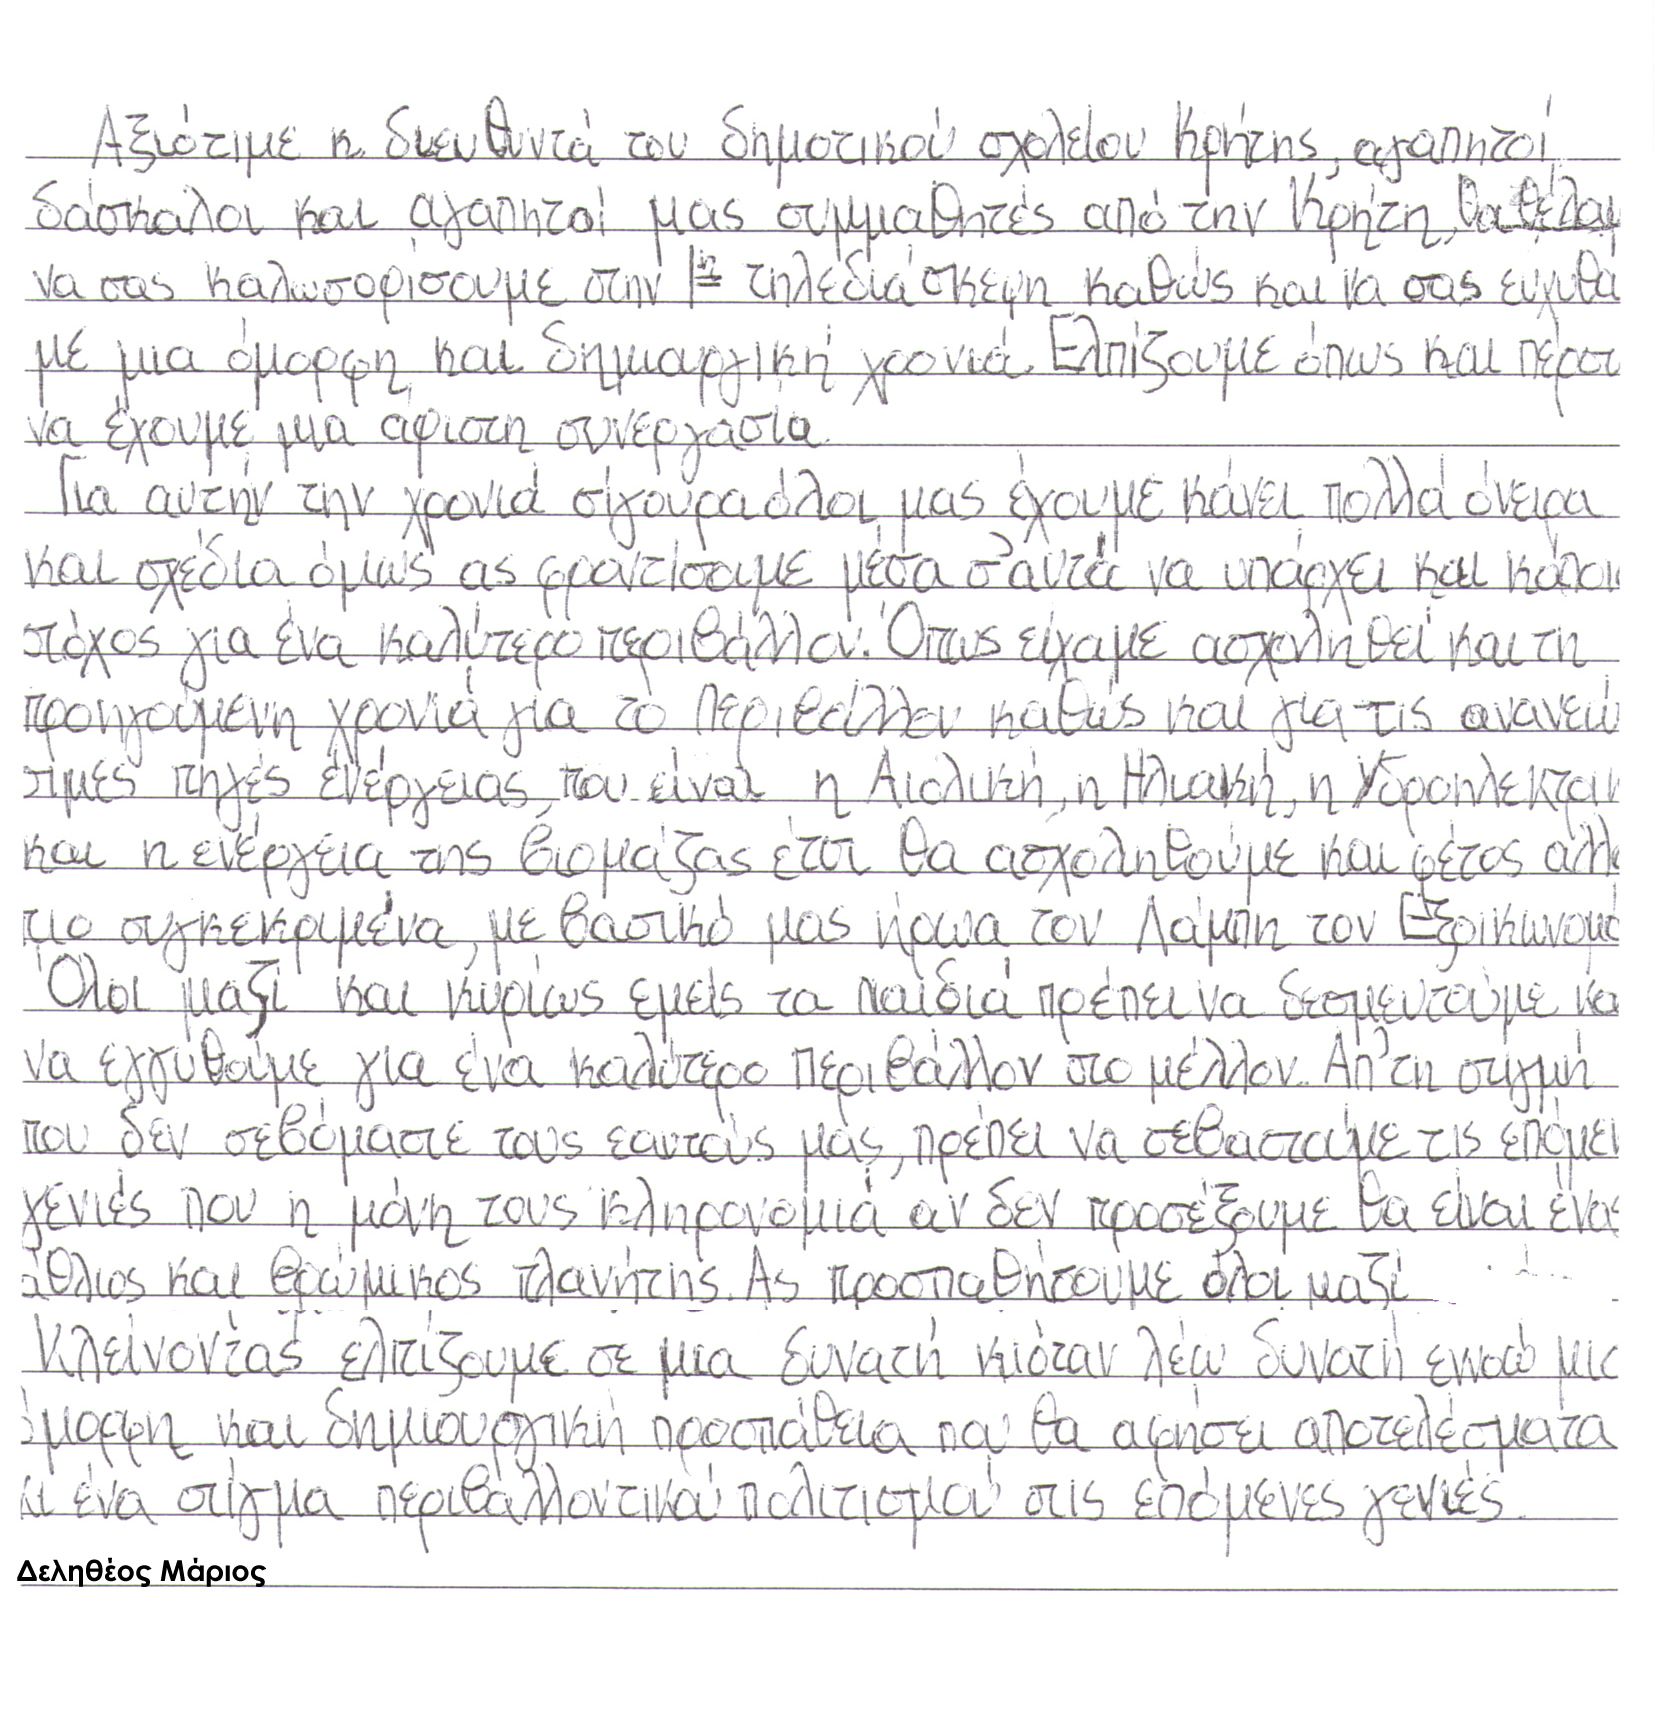 Αξιότιμε κ. διευθυντά του δημοτικού σχολείου Κρήτης, αγαπητοί
δάσκαλοι και αγαπητοί μας συμμαθητές από την Κρήτη, θα θέλαμ
να σας καλωσορίσουμε στην 1η τηλεδιάσκεψη καθώς και να σας ευχυθο
με μια όμορφη και δημιαργική χρονιά. Ελπίζουμε όπως και περσι
να έχουμε μια άριστη συνεργασία.
Για αυτήν την χρονιά σίγουρα όλοι μας έχουμε κάνει πολλά όνειρα
και σχέδια όμως ας φροντίσουμε μέσα σ'αυτά να υπάρχει και κάποι
στόχος για ένα καλύτερο περιβάλλον. Όπως είχαμε ασχοληθεί και τη
προηγούμενη χρονιά για το περιβάλλον καθώς και για τις ανανεώ
σιμες πηγές ενέργειας, που είναι η Αιολική, η Ηλιακή, η Υδροηλεκτρικ
και η ενέργεια της βιομάζας έτσι θα ασχοληθούμε και φέτος αλλα
πιο συγκεκριμένα, με βασικό μας ήρωα τον Λάμπη τον Εξοικονομο
Όλοι μαζί και κυρίως εμείς τα παιδιά πρέπει να δεσμευτούμε κα
να εγγυθούμε για ένα καλύτερο περιβάλλον στο μέλλον. Απ'τη στιγμή
που δεν σεβόμαστε τους εαυτούς μας, πρέπει να σεβαστούμε τις επόμεν
γενιές που η μόνη τους κληρονομιά αν δεν προσέξουμε θα είναι ένας
άθλιος και βρώμικος πλανήτης. Ας προσπαθήσουμε όλοι μαζί
Κλείνοντας ελπίζουμε σε μια δυνατή κι όταν λέω δυνατή εννοώ μια
όμορφη και δημιουργική προσπάθεια που θα αφήσει αποτελέσματα
κι ένα στίγμα περιβαλλοντικού πολιτισμού στις επόμενες γενιές.
Δεληθέος Μάριος